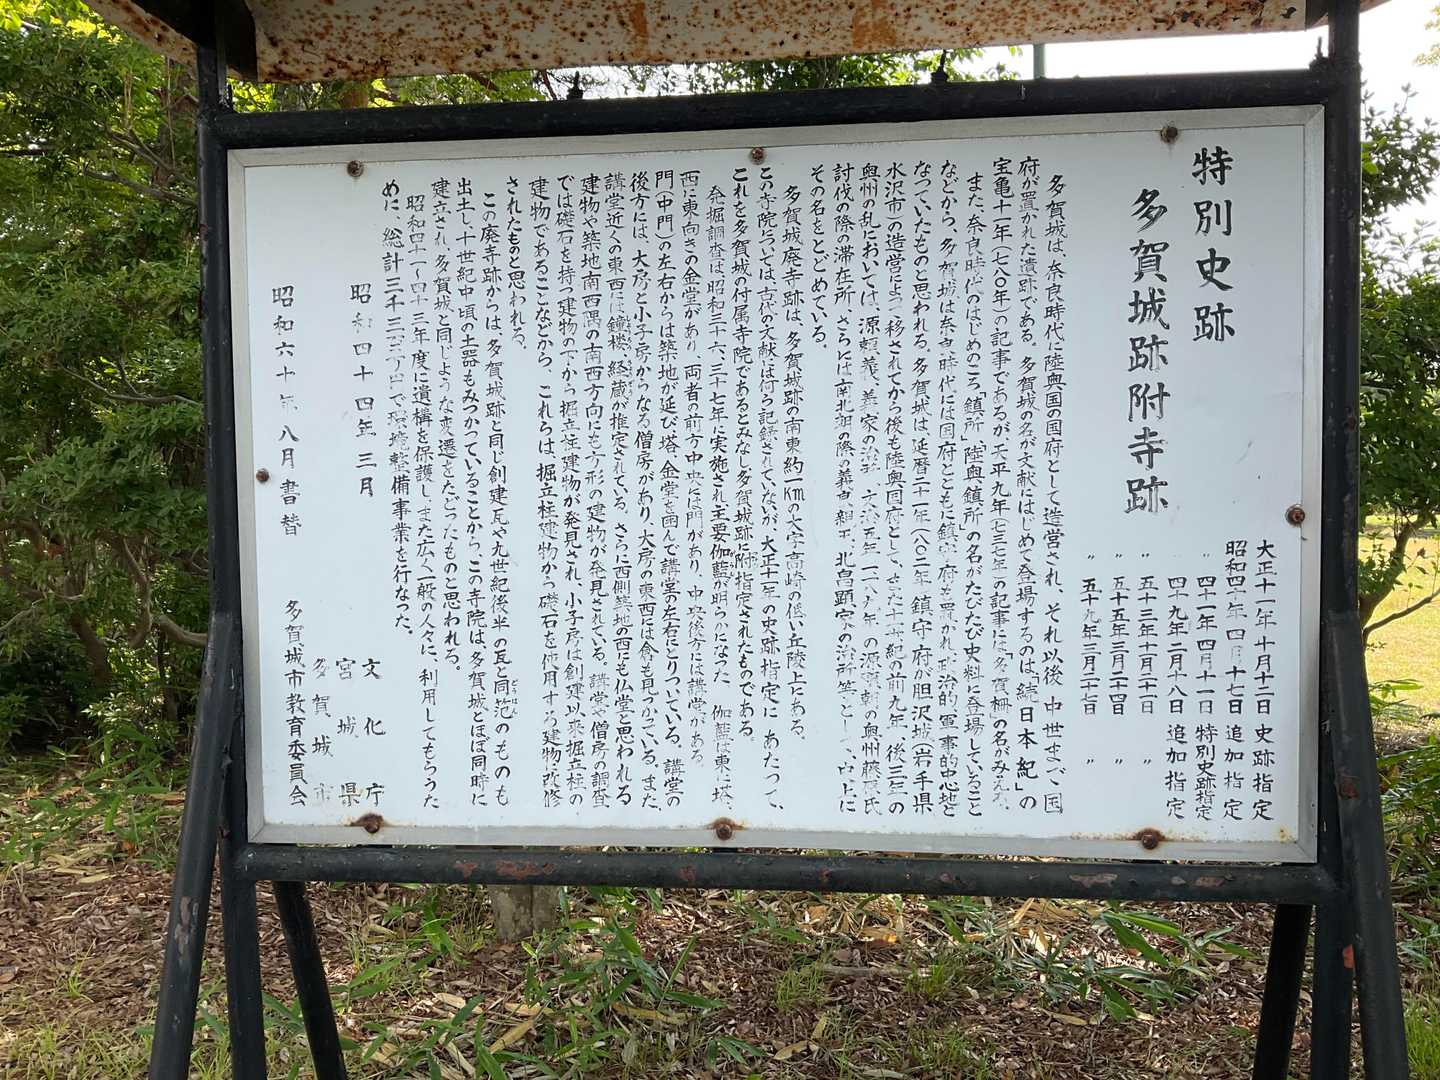 特別史跡
多賀城跡附寺跡
大正十一年十月十二日 史跡指定
昭和四十年四月十七日 追加指定
〃 四十一年四月十一日 特別史跡指定
四十九年二月十八日 追加指定
〃 五十三年十月二十一日 〃
〃 五十五年三月二十四日
〃 五十九年三月二十七日 〃
多賀城は、奈良時代に陸奥国の国府として造営され、それ以後、中世まで国
府が置かれた遺跡である。多賀城の名が文献にはじめて登場するのは、「続日本紀」の
宝亀十一年(七八〇年)の記事であるが、天平九年(七三七年)の記事には「多賀柵」の名がみえる。
また、奈良時代のはじめのころ「鎮所」「陸奥鎮所」の名がたびたび史料に登場していること
などから、多賀城は奈良時代には国府とともに鎮守府も置かれ、政治的、軍事的中心地と
なっていたものと思われる。多賀城は、延暦二十一年(八〇二年)鎮守府が胆沢城(岩手県
水沢市)の造営によって移されてから後も陸奥国府として、また十一世紀の前九年、後三年の
奥州の乱においては、源頼義、義家の治所、文治五年(一一八九年)の源頼朝の奥州藤原氏
討伐の際の滞在所、さらには南北朝の際の義良親王、北畠顕家の治所等として、史上に
その名をとどめている。
多賀城廃寺跡は、多賀城跡の南東約一Kmの大字高崎の低い丘陵上にある。
この寺院については、古代の文献は何ら記録されていないが、大正十一年の史跡指定にあたって、
これを多賀城の付属寺院であるとみなし、多賀城跡に附指定されたものである。
発掘調査は、昭和三十六、三十七年に実施され主要伽藍が明らかになった。伽藍は東に塔、
西に東向きの金堂があり、両者の前方中央には門があり、中央後方には講堂がある。
門(中門)の左右からは築地が延び塔、金堂を囲んで講堂の左右にとりついている。講堂の
後方には、大房と小子房からなる僧房があり、大房の東西には倉も見つかっている。また、
講堂近くの東西には鐘楼、経蔵が推定されている。さらに西側築地の西にも仏堂と思われる
建物や築地南西隅の南西方向にも方形の建物が発見されている。講堂や僧房の調査
では礎石を持つ建物の下から掘立柱建物が発見され、小子房は創建以来掘立柱の
建物であることなどから、これらは、掘立柱建物から礎石を使用する建物に改修
されたものと思われる。
この廃寺跡からは、多賀城跡と同じ創建瓦や九世紀後半の瓦と同笵のものも
出土し、十世紀中頃の土器もみつかっていることから、この寺院は、多賀城とほぼ同時に
建立され、多賀城と同じような変遷をたどったものと思われる。
昭和四十一~四十三年度に遺構を保護し、また広く一般の人々に、利用してもらうた
めに、総計三千三百万円で環境整備事業を行なった。
昭和四十四年三月
文化庁
宮城県
多賀城市
昭和六十年八月書替
多賀城市教育委員会